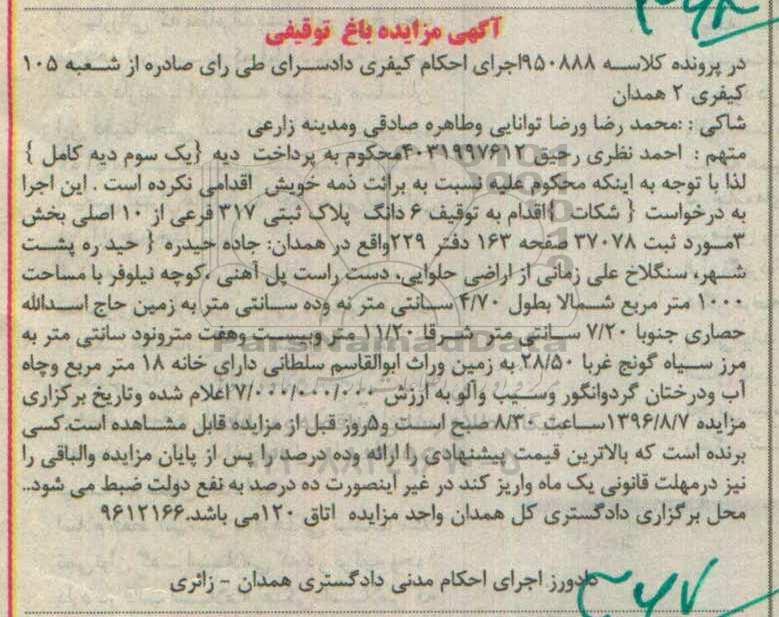 آگهی مزایده باغ توقیفی
در پرونده کلاسه ۹۵۰۸۸۸اجرای احکام کیفری دادسرای طی رای صادره از شعبه ۱۰۵
کیفری ۲ همدان
شاکی : :محمد رضا ورضا توانایی وطاهره صادقی ومدینه زارعی
متهم : احمد نظری رحیق ۴۰۳۱۹۹۷۶۱۲محکوم به پرداخت دیه {یک سوم دیه کامل }
لذا با توجه به اینکه محکوم علیه نسبت به برائت ذمه خویش اقدامی نکرده است . این اجرا
به درخواست { شکات }اقدام به توقیف ۶ دانگ پلاک ثبتی ۳۱۷ فرعی از ۱۰ اصلی بخش
۳مورد ثبت ۳۷۰۷۸ صفحه ۱۶۳ دفتر ۲۲۹واقع در همدان: جاده حیدره { حید ره پشت
شهر، سنگلاخ علی زمانی از اراضی حلوایی، دست راست پل آهنی ،کوچه نیلوفر با مساحت
۱۰۰۰ متر مربع شمالا بطول ۴/۷۰ سانتی متر نه وده سانتی متر به زمین حاج اسدالله
حصاری جنوبا ۷/۲۰ سانتی متر شرقا ۱۱/۲۰ متر وبیست وهفت مترونود سانتی متر به
مرز سیاه گونج غربا ۲۸/۵۰ به زمین وراث ابوالقاسم سلطانی دارای خانه ۱۸ متر مربع وچاه
آب ودرختان گردوانگور وسیب وآلو به ارزش ۲۷/۰۰۰/۰۰۰/۰۰۰اعلام شده وتاریخ برگزاری
مزایده ۱۳۹۶/۸/۷ساعت ۸/۳۰ صبح است و۵روز قبل از مزایده قابل مشاهده است.کسی
برنده است که بالاترین قیمت پیشنهادی را ارائه وده درصد را پس از پایان مزایده والباقی را
نیز درمهلت قانونی یک ماه واریز کند در غیر اینصورت ده درصد به نفع دولت ضبط می شود..
محل برگزاری دادگستری کل همدان واحد مزایده اتاق ۱۲۰می باشد.۹۶۱۲۱۶۶
دادورز اجرای احکام مدنی دادگستری همدان - زائری
ParsNamadData